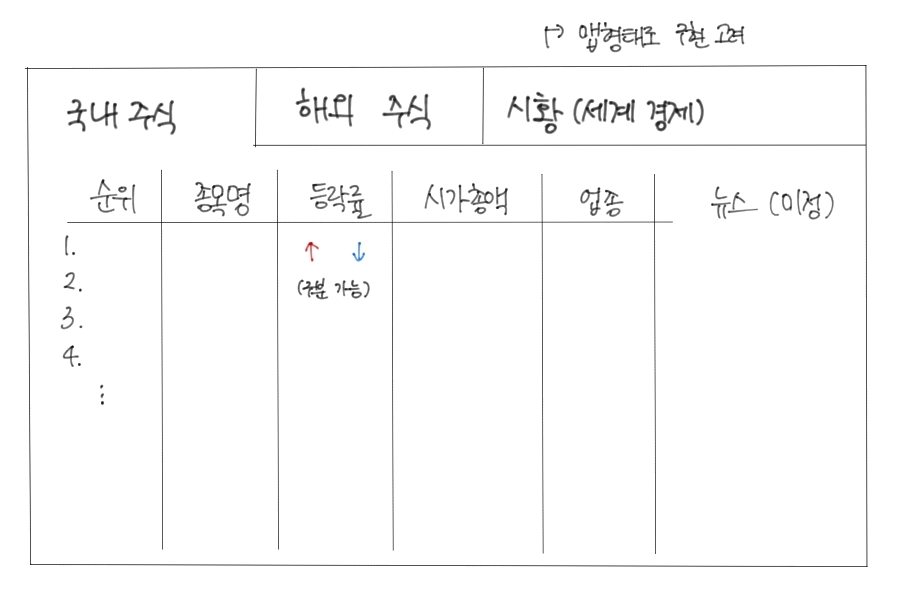 ↱ 맵형태로 구현 고려
국내 주식 해외 주식 시황 (세계 경제)
순위 종목명 등락률 시가총액 업종 뉴스 (미정)
1. ↑ ↓
2. (구분 가능)
3.
4.
⋮